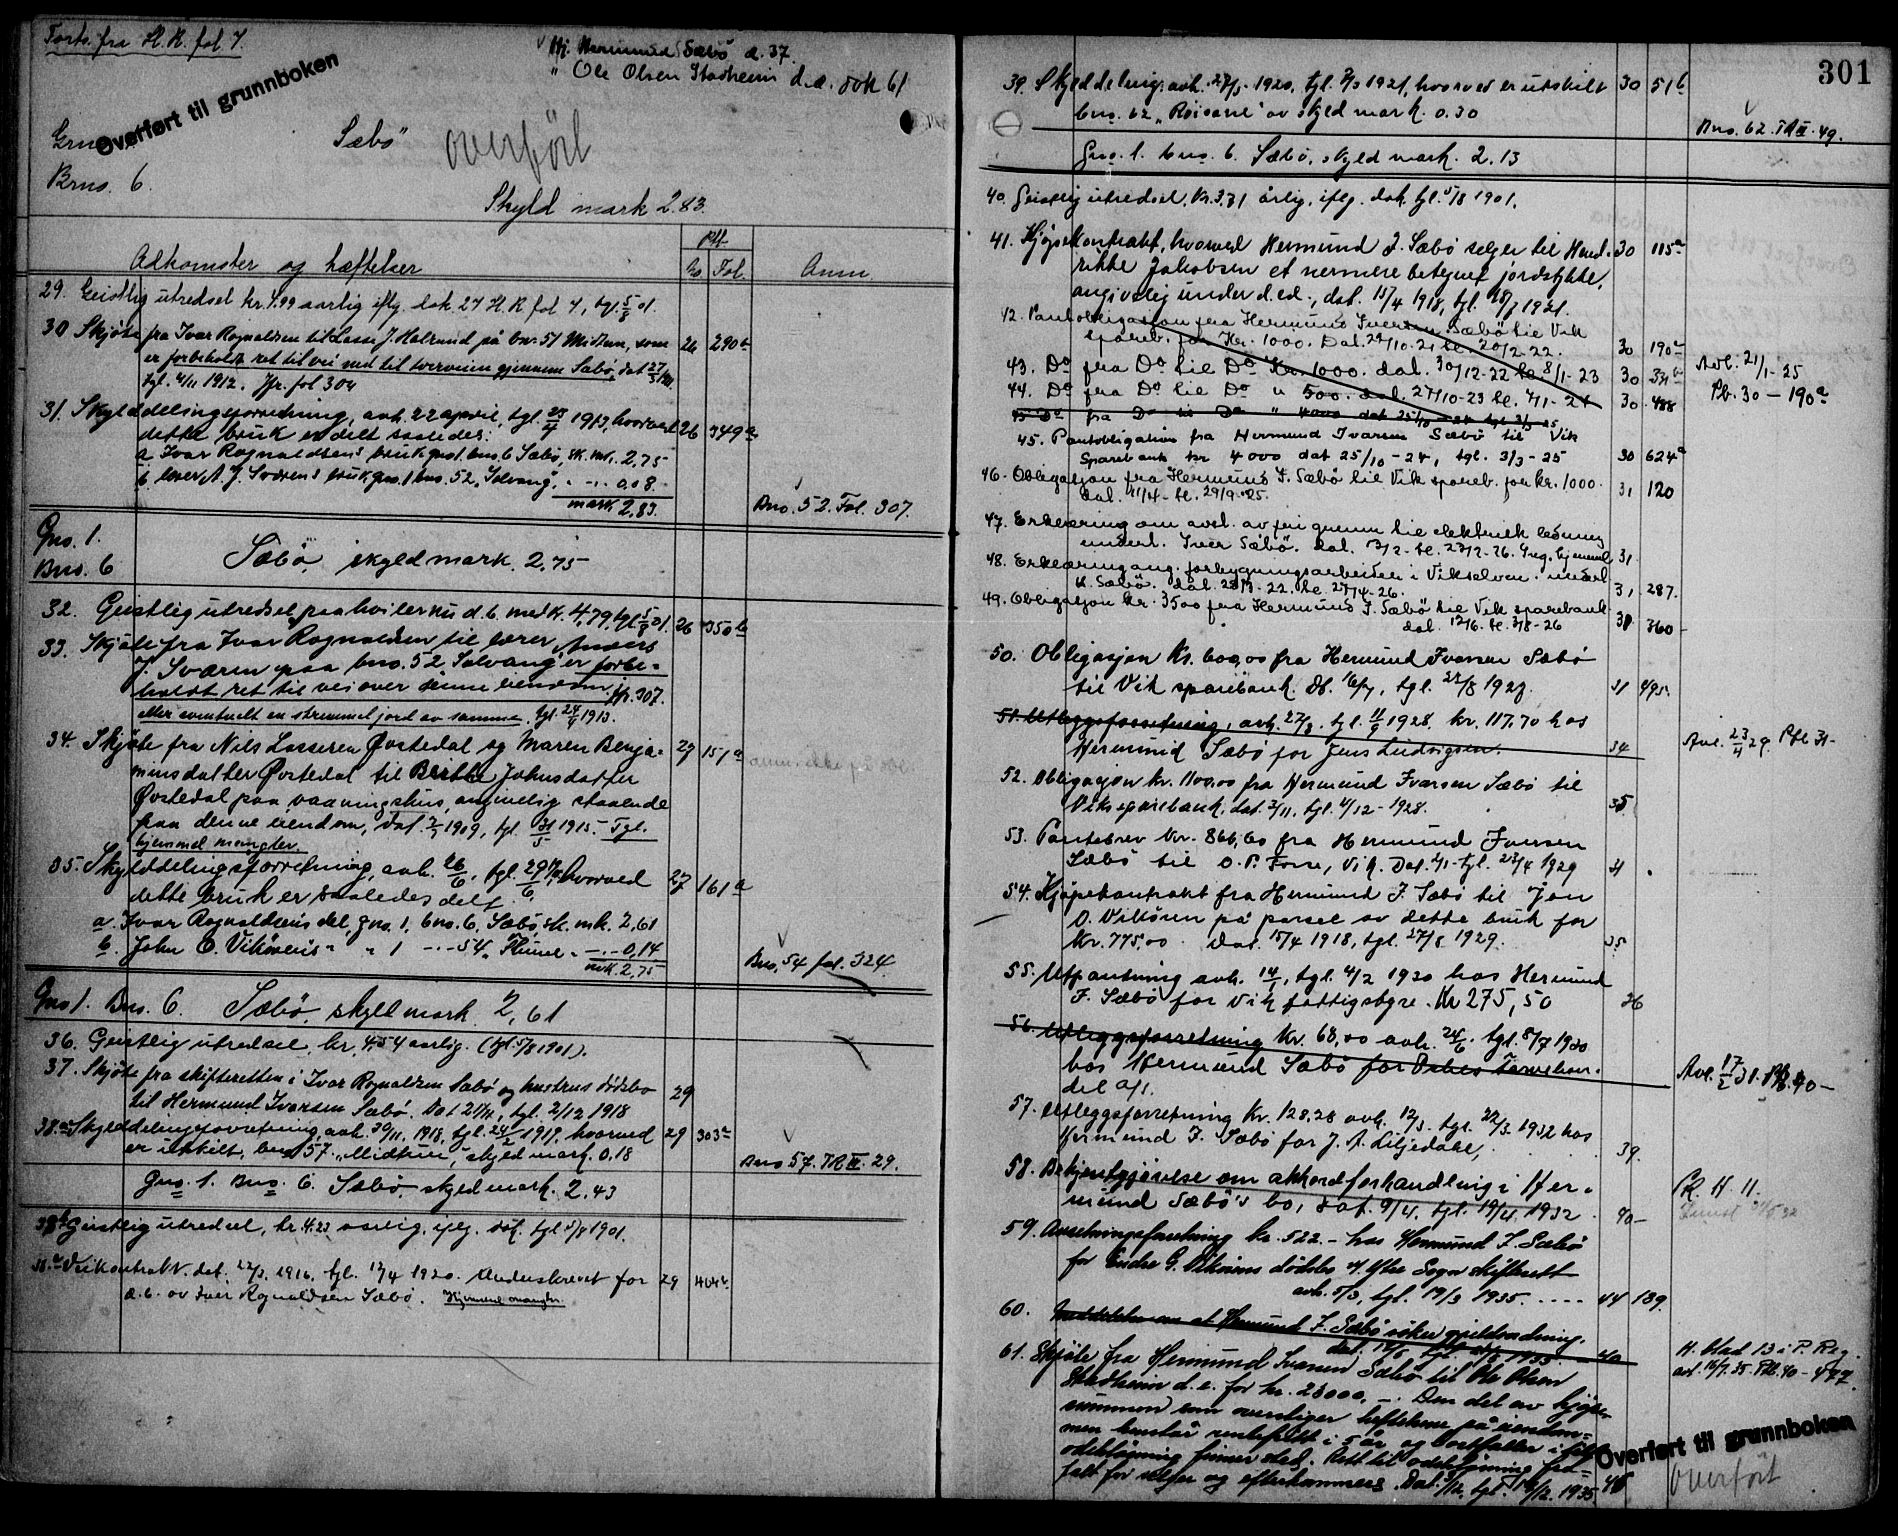 Forts. fra H. R. fol 7.
Hj. Hermund Sæbö d. 37.
" Ole Olsen Stadheim d.a. dok 61
Overført til grunnboken
Gno
Sæbö
overfört
Brno. 6.
Skyld mark 2.83.
Adkomster og hæftelser
Pb.
No Fol.
Anm
29. Geistlig utredsel kr. 4.99 aarlig iflg. dok. 27 H. R fol 7, tgl. 5/8 01.
30 Skjöte fra Ivar Rognaldsen til Lasse J. Halsund på bno. 51 Midtun, som 26 290 b
er forbeholdt ret til vei ned til hovveien gjennem Sæbö, dat 27/3
tgl. 4/11 1912. Jfr. fol 304
31. Skylddelingsforretning, avh. 22 april, tgl. 23/4 1913, hvorved 26 349 a
dette bruk er delt saaledes:
a Ivar Rognaldsens bruk gno. 1. bno. 6 Sæbö, sk. mk. 2,75
b. lærer A. J. Sværens bruk gno. 1 bno. 52, Solvang, -"- 0.08
mark 2,83.
Bno. 52. Fol. 307.
Gno. 1.
Bno. 6
Sæbö, skyld mark. 2,75
32. Geistlig utredsel paahviler nu d. b. med k. 4,79, tgl. 5/8 01. 26 350 b
33. Skjöte fra Ivar Rognaldsen til lærer Anders
J. Sværen paa bno. 52 Solvang er forbe-
holdt ret til vei over denne eiendom jfr. 307.
eller eventuelt en strimmel jord av samme. tgl. 24/4 1913.
34. Skjöte fra Nils Lasseson Övstedal og Maren Benja- 27 151 a
minsdatter Övstedal til Brithe Johnsdatter
Övstedal paa vaaningshus, angivelig staaende
paa denne eiendom, dat. 2/7 1909, tgl. 31/5 1915. Tgl.
hjemmel mangler.
35. Skylddelingsforretning, avh. 26/6, tgl. 29/6 hvorved 27 161 a
dette bruk er saaledes delt:
a. Ivar Rognaldsens del, gno. 1, bno. 6, Sæbö, sk. mk. 2,61
b. John O. Vikörens " " 1 -"- 54, Hunel -"- 0,14
mk. 2,75
Bno. 54 fol. 324.
Gno 1. Bno. 6. Sæbö, skyld mark 2,61
36. Geistlig utredsel, kr. 4,54 aarlig. (tgl. 5/8 1901).
37. Skjöte fra skifteretten i Ivar Rognaldsen Sæbö og hustrus dödsbo 29
til Hermund Ivarsen Sæbö. Dat 21/11, tgl. 2/12 1918
38. a Skylddelingsforretning, avh. 30/11. 1918, tgl. 24/2 1919, hvorved 29 303 a
er utskilt, bno 57. "Midtun", skyld mark. 0.18
Bno 57. TR III. 29.
Gno. 1. Bno. 6. Sæbö, skyld mark. 2.43
38 b Geistlig utredsel, kr. 4.23 aarlig, iflg. dok. tgl. 5/8 1901.
38. c Veikontrakt. dat. 22/3. 1916. tgl. 17/4 1920. Underskrevet for 29 404 b
d. b. av Iver Rognaldsen Sæbö. Hjemmel mangler.
301
39. Skylddeling, avh. 27/5. 1920, tgl. 2/3 1921, hvorved er utskilt 30 51 b
bno. 62 "Roisane" av skyld mark. 0.30
Bno. 62. TR III. 49.
Gno. 1. bno. 6. Sæbö, skyld mark. 2.13
40. Geistlig utredsel, kr. 3.71 årlig, iflg. dok. tgl. 5/8 1901.
41. Kjöpekontrakt, hvorved Hermund I. Sæbö selger til Hend- 30 115 a
rikke Jakobsen et nermere betegnet jordstykke,
angivelig under d. ed., dat. 15/4 1918, tgl. 18/7 1921.
42. Pantobligasjon fra Hermund Iversen Sæbö til Vik
spareb. for kr. 1000. Dat. 24/10-21 tl. 20/2-22. 30 190 a
43. Do fra Do til Do kr. 1000. dal. 30/12-22 tl. 8/1-23 30 331 b
Avl. 21/1-25
44. Do fra Do til Do " 500. dal. 27/10-23 tl. 7/11-24 30. 488
Pb. 30 - 190 a
45 Do fra Do til Do " 4000 dat 25/10-24 tgl 3/3 25
45. Pantobligation fra Hermund Ivarsen Sæbö til Vik
Sparebank kr 4000 dat 25/10-24, tgl. 3/3-25 30 624 a
46. Obligasjon fra Hermund I. Sæbö til Vik spareb. for kr. 1000.
dal. 11/4 - tl. 29/9-25. 31 120
47. Erklæring om avst. av fri grunn til elektrisk ledning
underl. Iver Sæbö. dal. 13/2 - tl. 23/12-26. Treg. hjemmel 31
48. Erklæring ang. forbygningsarbeider i Vikselven. underl
H. Sæbö. dal. 28/3-22. tl. 27/4-26. 31 287.
49. Obligasjon kr. 3500 fra Hermund I. Sæbö til Vik sparebank
dal. 12/6. tl. 3/8-26 31 360
50. Obligasjon kr. 600,00 fra Hermund Ivarsen Sæbö
til Vik sparebank. Dt. 16/7, tgl. 22/8 1927. 31 495.
51. Utleggsforretning, avh. 27/8. tgl. 11/9 1928 kr. 117.70 hos
Hermund Sæbö for Jens Ludvigsen. 34
Avl. 23/4 29. Pb 31-
52. Obligasjon kr. 1100,00 fra Hermund Ivarsen Sæbö til
Vik sparebank, dat. 2/11, tgl. 4/12-1928. 35
53. Pantebrev kr. 866,60 fra Hermund Iversen
Sæbö til O. P. Fosse, Vik. Dat. 2/1 tgl. 23/4 1929 31
54. Kjöpekontrakt fra Hermund I. Sæbö til Jon
O. Vikören på parsel av dette bruk for
kr. 775,00. Dat. 15/4 1918, tgl. 27/8 1929. 35
55. Utpantning avh. 14/1, tgl. 4/2 1930 hos Hermund
I. Sæbö for Vik fattigstyre. Kr 275,50 36
56. Utleggsforretning kr. 68,00 avh. 24/6. tgl. 8/7 1930
hos Hermund Sæbö for
del a/s.
57. Utleggsforretning kr. 128.28 avh. 12/3. tgl. 22/3. 1932 hos
Hermund I. Sæbö for J. A. Liljedahl, 39
58. Bekjentgjörelse om akkordforhandling i Her-
mund Sæbö's bo, dat. 9/4. tgl. 19/4. 1932 40
Pk. H. 11.
59. Avsetningsforretning kr. 522.- hos Hermund I. Sæbö
for Endre G. Vikörens dödsbo v/ Ytre Sogn skifterett
avh. 5/3, tgl. 19/3 1935. 44 139.
60. Meddelelse om at Hermund I. Sæbö söker gjeldsordning.
1935 40
H. blad 13 i P. Reg.
avl. 16/7. 35. Pb. 40 - 477.
61. Skjöte fra Hermund Ivarsen Sæbö til Ole Olsen
Stadheim d. e. for kr. 23000.-. Den del av kjöpe-
summen som overstiger heftelsene på eiendom-
men henstår rentefritt i 5 år og bortfaller i fall
odelslösning finner sted. Rett til odelslösning fra-
falt for selger og efterkommere. Dat. 3/12, tgl. 12/12. 1935 46
Overført til grunnboken
overfört